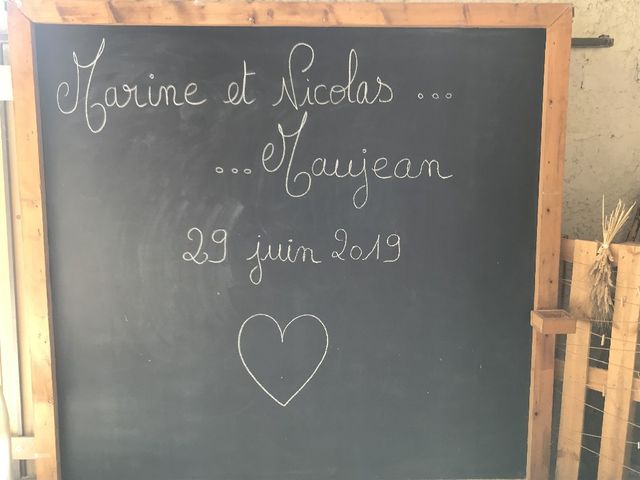 Marine et Nicolas ...
... Maujean
29 juin 2019